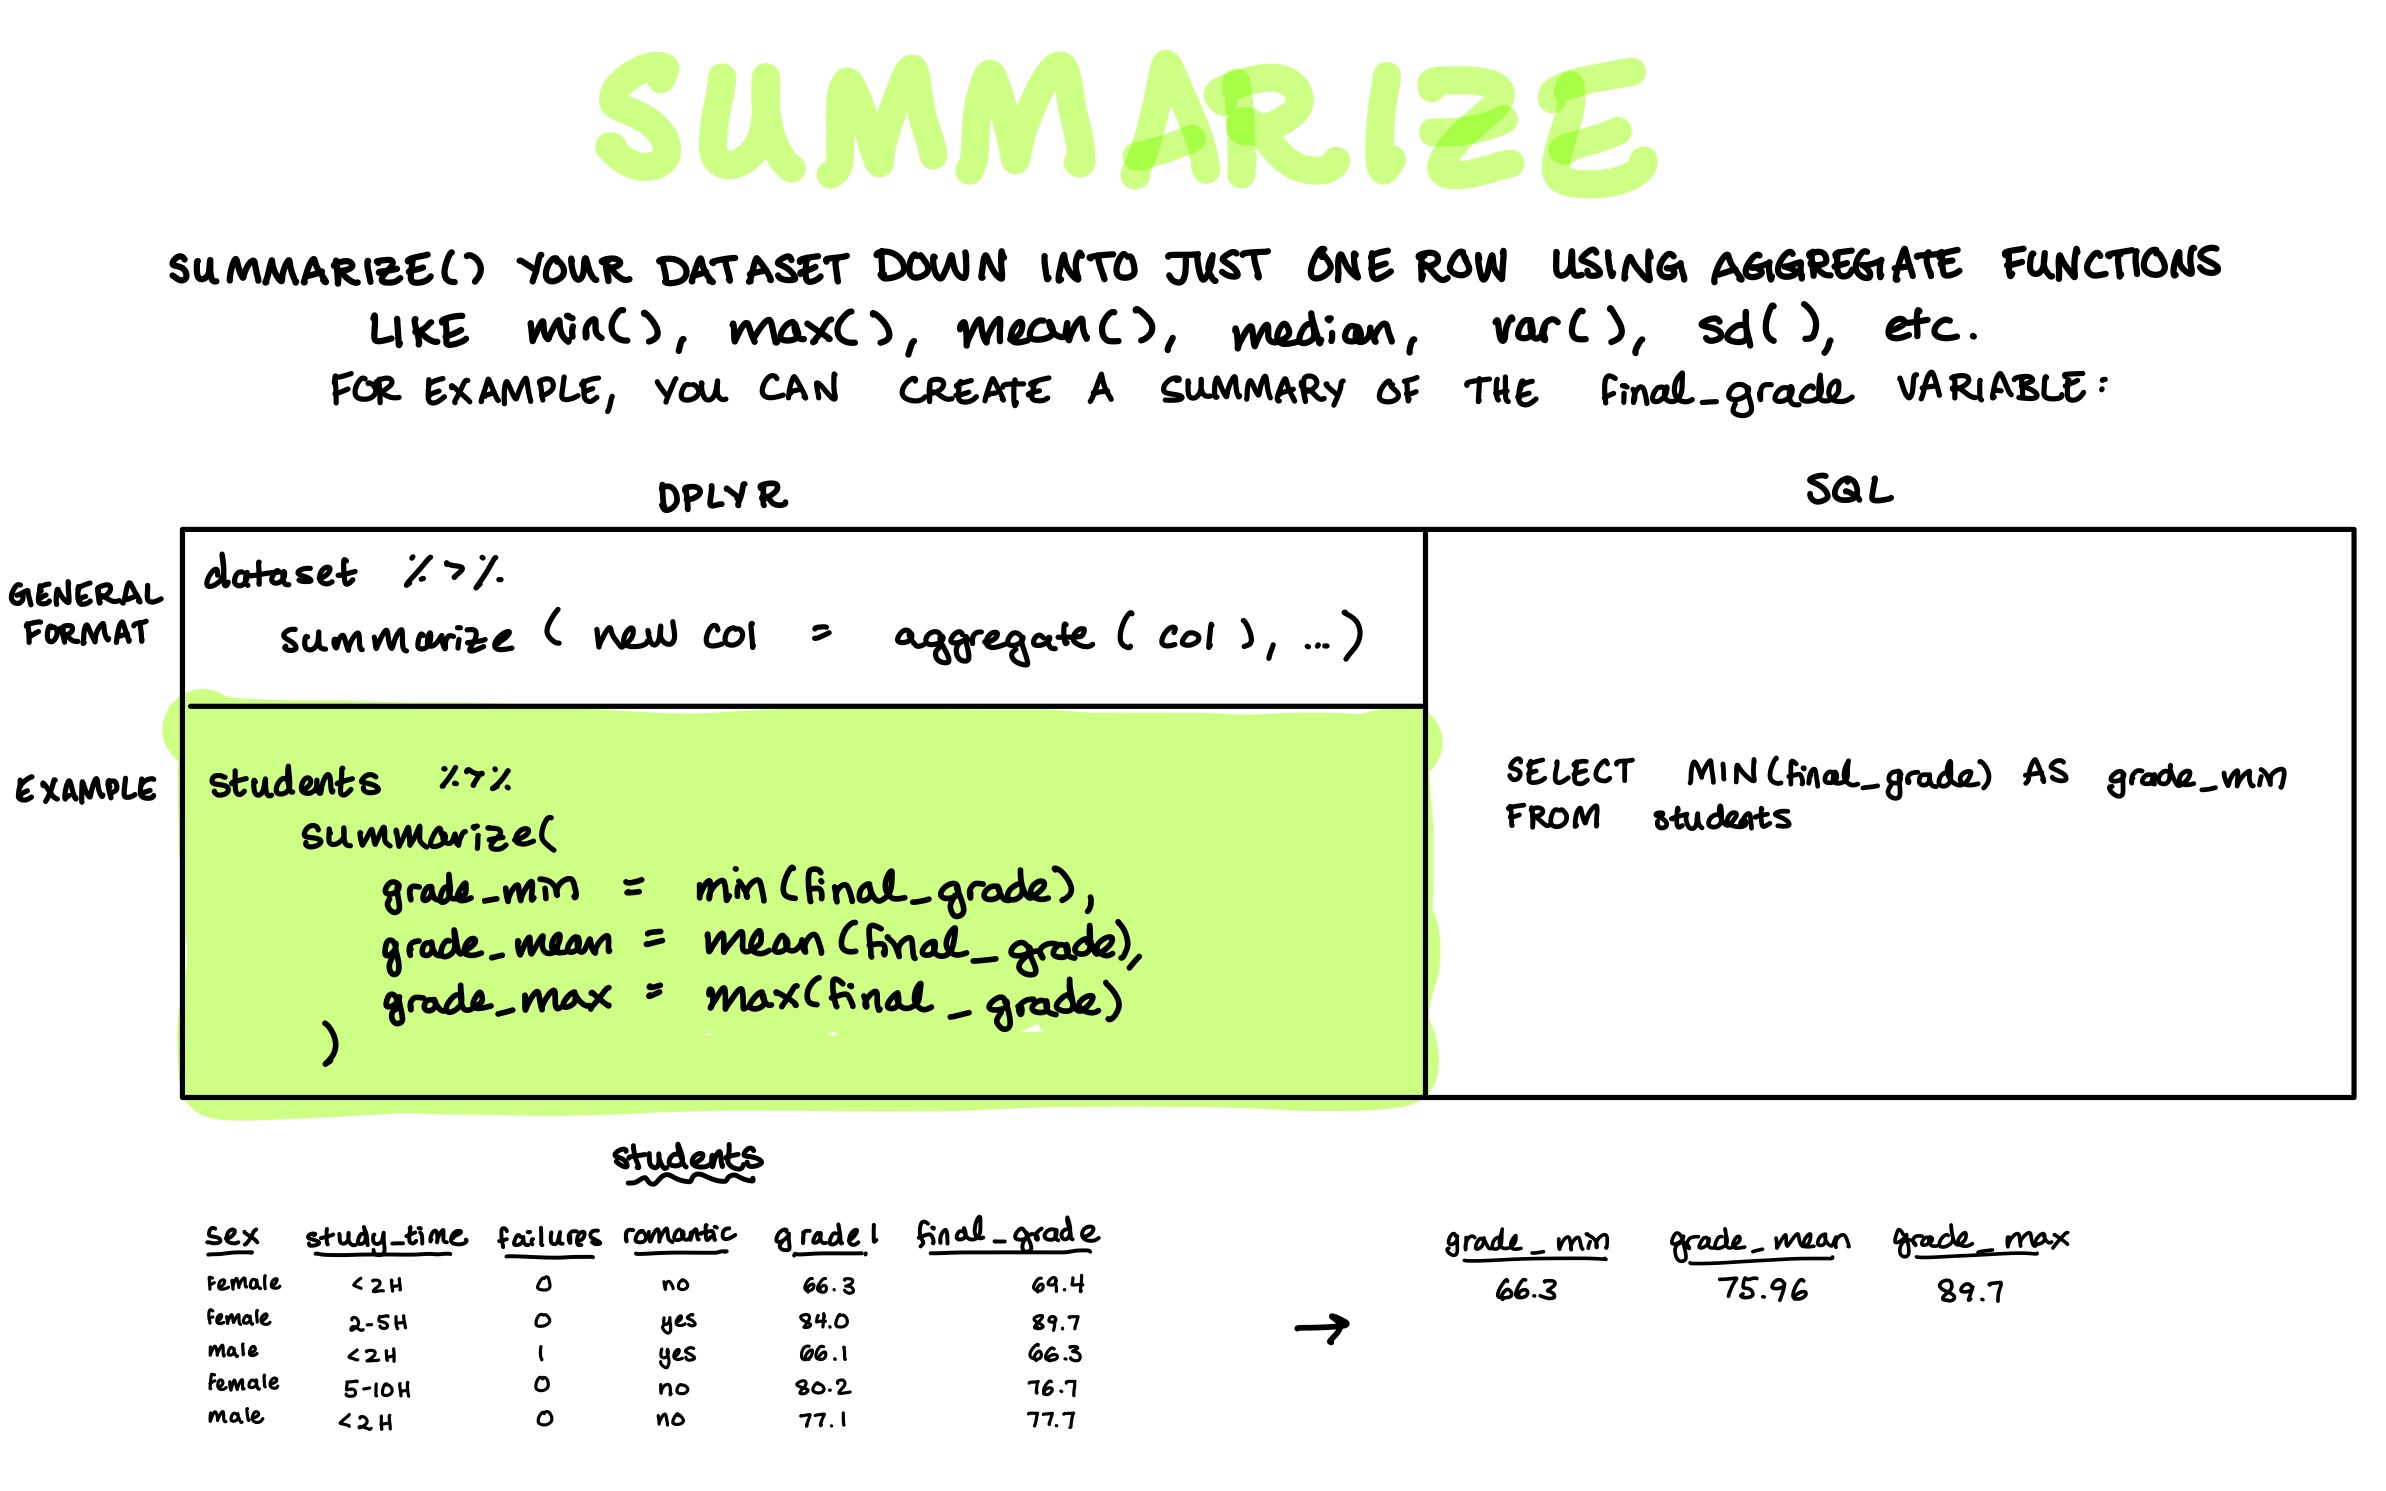 SUMMARIZE
SUMMARIZE() YOUR DATASET DOWN INTO JUST ONE ROW USING AGGREGATE FUNCTIONS
LIKE min(), max(), mean(), median, var(), sd(), etc.
FOR EXAMPLE, YOU CAN CREATE A SUMMARY OF THE final_grade VARIABLE:
DPLYR SQL
GENERAL FORMAT
dataset %>%
summarize ( new col = aggregate ( col ), ... )
EXAMPLE
students %>%
summarize(
grade_min = min (final_grade),
grade_mean = mean (final_grade),
grade_max = max(final_grade)
)
SELECT MIN(final_grade) AS grade_min
FROM students
students
sex study_time failures romantic grade1 final_grade
female <2H 0 no 66.3 69.4
female 2-5H 0 yes 84.0 89.7
male <2H 1 yes 66.1 66.3
female 5-10H 0 no 80.2 76.7
male <2H 0 no 77.1 77.7
→
grade_min grade_mean grade_max
66.3 75.96 89.7